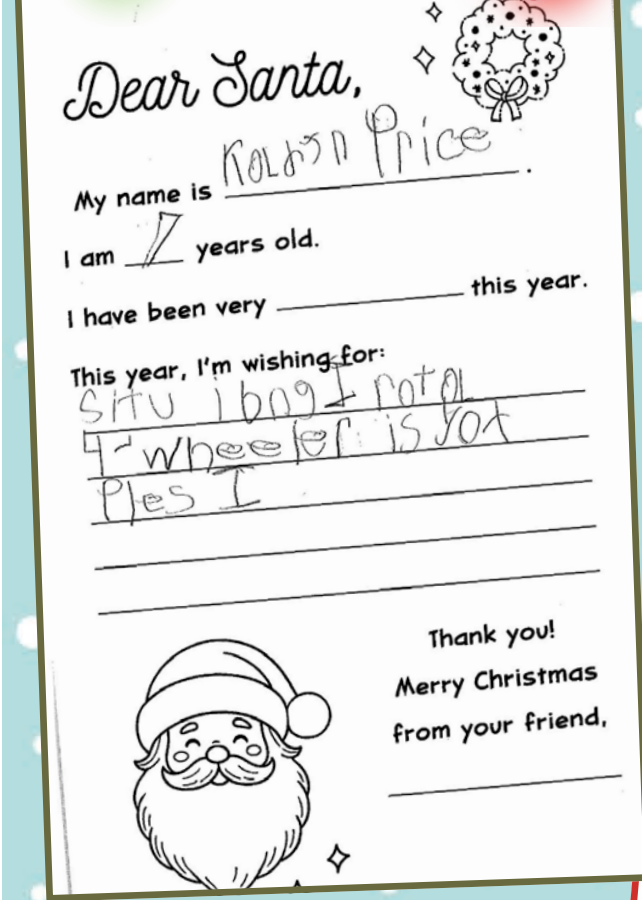 Dear Santa,
My name is Kolby​n Price.
I am 7 years old.
I have been very ______ this year.
This year, I'm wishing for:
I
4-wheeler is
Ples I
Thank you!
Merry Christmas
from your friend,